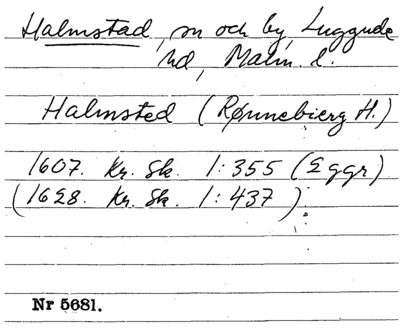 Halmstad, sn och by, Luggude
hd, Malm. l.
Halmsted (Rønnebierg H.)
1607. Kr. Sk. 1:355 (2 ggr)
(1628. Kr. Sk. 1:437)
Nr 5681.